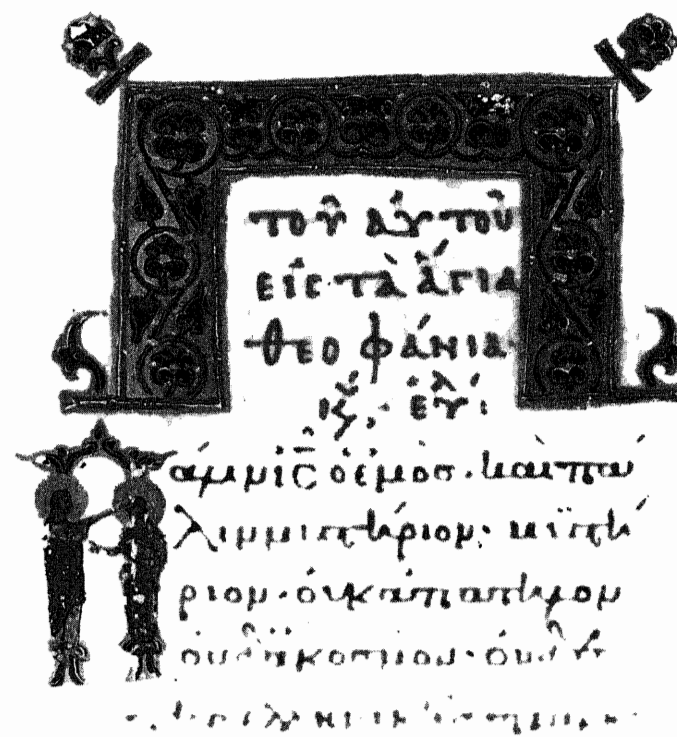 τοῦ αὐτοῦ
εἰς τὰ ἅγια
θεοφάνια·
εὐλ:
Πάλιν ἰς ὁ ἐμὸσ· καὶ πά
λιν μυστήριον· μυστή
ριον· οὐκ ἀπατηλὸν
οὐδὲ ἄκοσμον· οὐδὲ